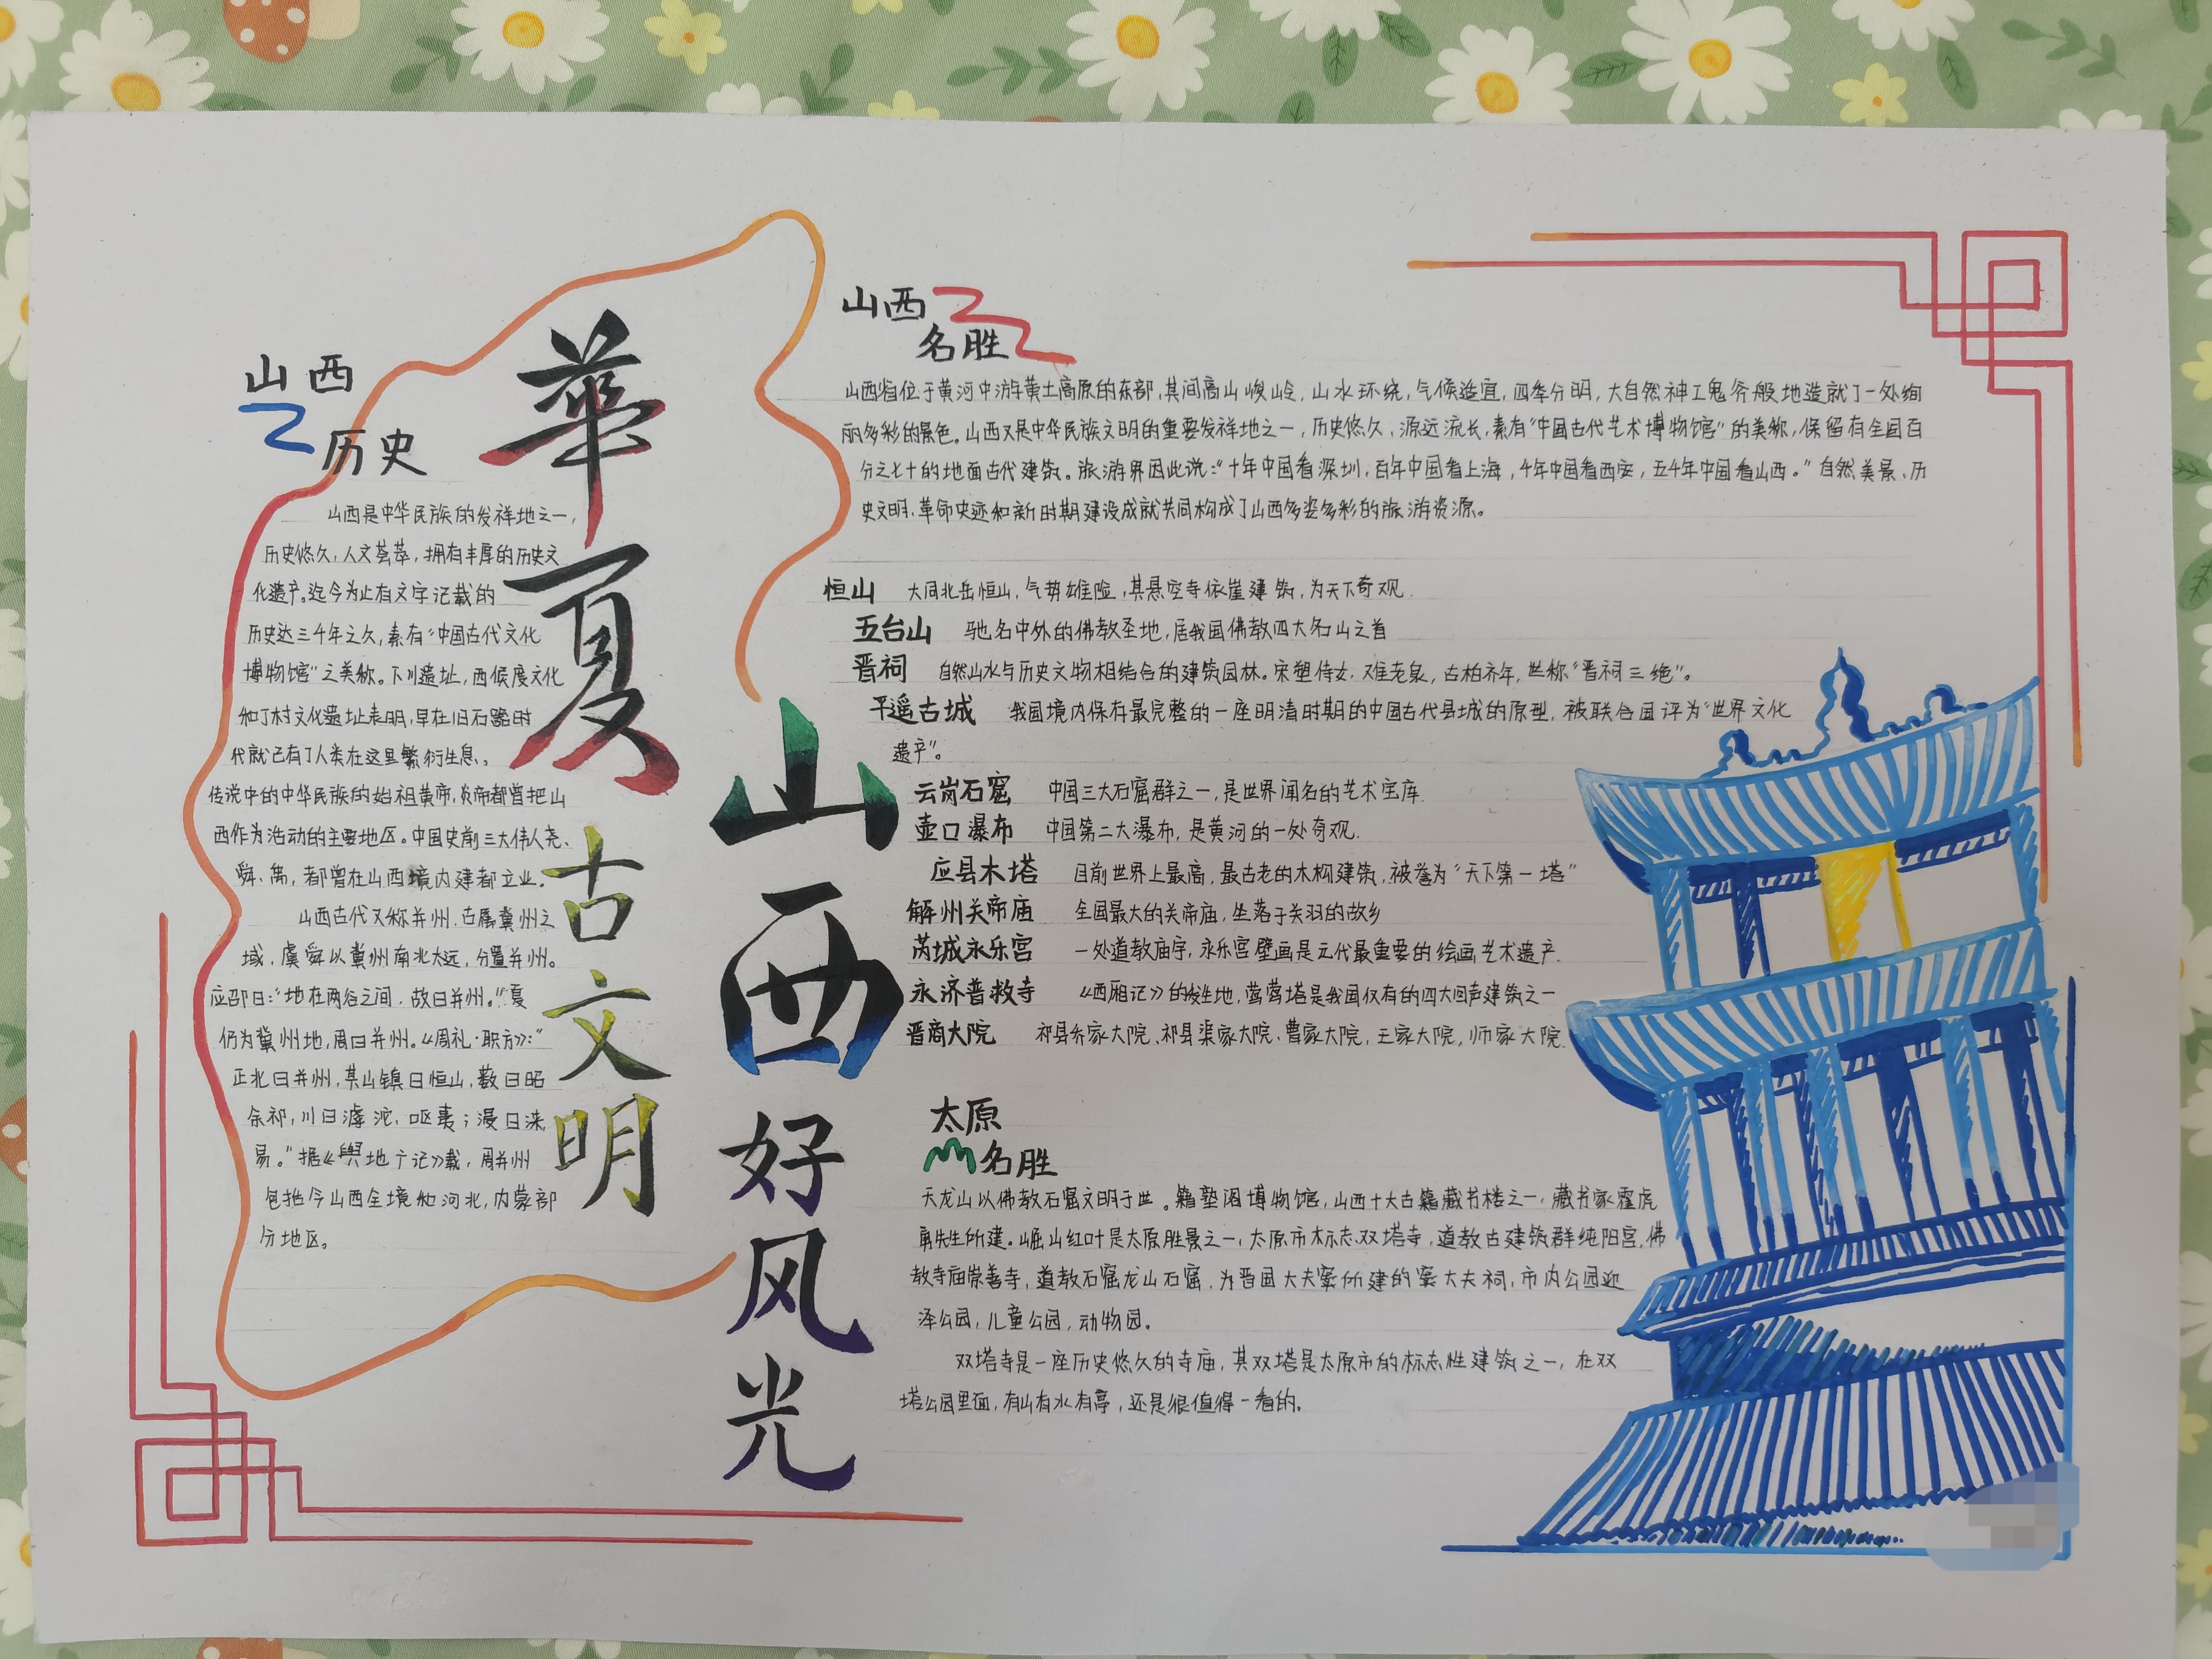 華夏
古文明
山西
好风光
山西
历史
山西是中华民族的发祥地之一,
历史悠久,人文荟萃,拥有丰厚的历史文
化遗产。迄今为止有文字记载的
历史达三千年之久,素有“中国古代文化
博物馆”之美称。下川遗址,西候度文化
和丁村文化遗址表明,早在旧石器时
代就已有了人类在这里繁衍生息。
传说中的中华民族的始祖黄帝,炎帝都曾把山
西作为活动的主要地区。中国史前三大伟人尧、
舜、禹,都曾在山西境内建都立业。
山西古代又称并州,古属冀州之
域,虞舜以冀州南北太远,分置并州。
应邵曰:“地在两谷之间,故曰并州。”夏
仍为冀州地,周曰并州。《周礼·职方》:“
正北曰并州,其山镇曰恒山,薮曰昭
余祁,川曰滹沱,呕夷;浸曰涞,
易。”据《舆地广记》载,周并州
包括今山西全境和河北,内蒙部
分地区。
山西
名胜
山西省位于黄河中游黄土高原的东部,其间高山峻岭,山水环绕,气候适宜,四季分明,大自然神工鬼斧般地造就了一处绚
丽多彩的景色。山西又是中华民族文明的重要发祥地之一,历史悠久,源远流长,素有“中国古代艺术博物馆”的美称,保留有全国百
分之七十的地面古代建筑。旅游界因此说:“十年中国看深圳,百年中国看上海,千年中国看西安,五千年中国看山西。”自然美景、历
史文明、革命史迹和新时期建设成就共同构成了山西多姿多彩的旅游资源。
恒山 大同北岳恒山,气势雄险,其悬空寺依崖建筑,为天下奇观.
五台山 驰名中外的佛教圣地,居我国佛教四大名山之首
晋祠 自然山水与历史文物相结合的建筑园林。宋塑侍女,难老泉,古柏齐年,世称“晋祠三绝”。
平遥古城 我国境内保存最完整的一座明清时期的中国古代县城的原型,被联合国评为“世界文化
遗产”。
云岗石窟 中国三大石窟群之一,是世界闻名的艺术宝库.
壶口瀑布 中国第二大瀑布,是黄河的一处奇观.
应县木塔 目前世界上最高,最古老的木构建筑,被誉为“天下第一塔”
解州关帝庙 全国最大的关帝庙,坐落于关羽的故乡
芮城永乐宫 一处道教庙宇,永乐宫壁画是元代最重要的绘画艺术遗产.
永济普救寺 《西厢记》的发生地,莺莺塔是我国仅有的四大回声建筑之一
晋商大院 祁县乔家大院、祁县渠家大院,曹家大院,王家大院,师家大院.
太原
名胜
天龙山以佛教石窟文明于世。籍塾阁博物馆,山西十大古籍藏书楼之一,藏书家霍虎
勇先生所建。崛山红叶是太原胜景之一,太原市标志双塔寺,道教古建筑群纯阳宫,佛
教寺庙崇善寺,道教石窟龙山石窟,为晋国大夫窦所建的窦大夫祠,市内公园迎
泽公园,儿童公园,动物园。
双塔寺是一座历史悠久的寺庙,其双塔是太原市的标志性建筑之一,在双
塔公园里面,有山有水有亭,还是很值得一看的。